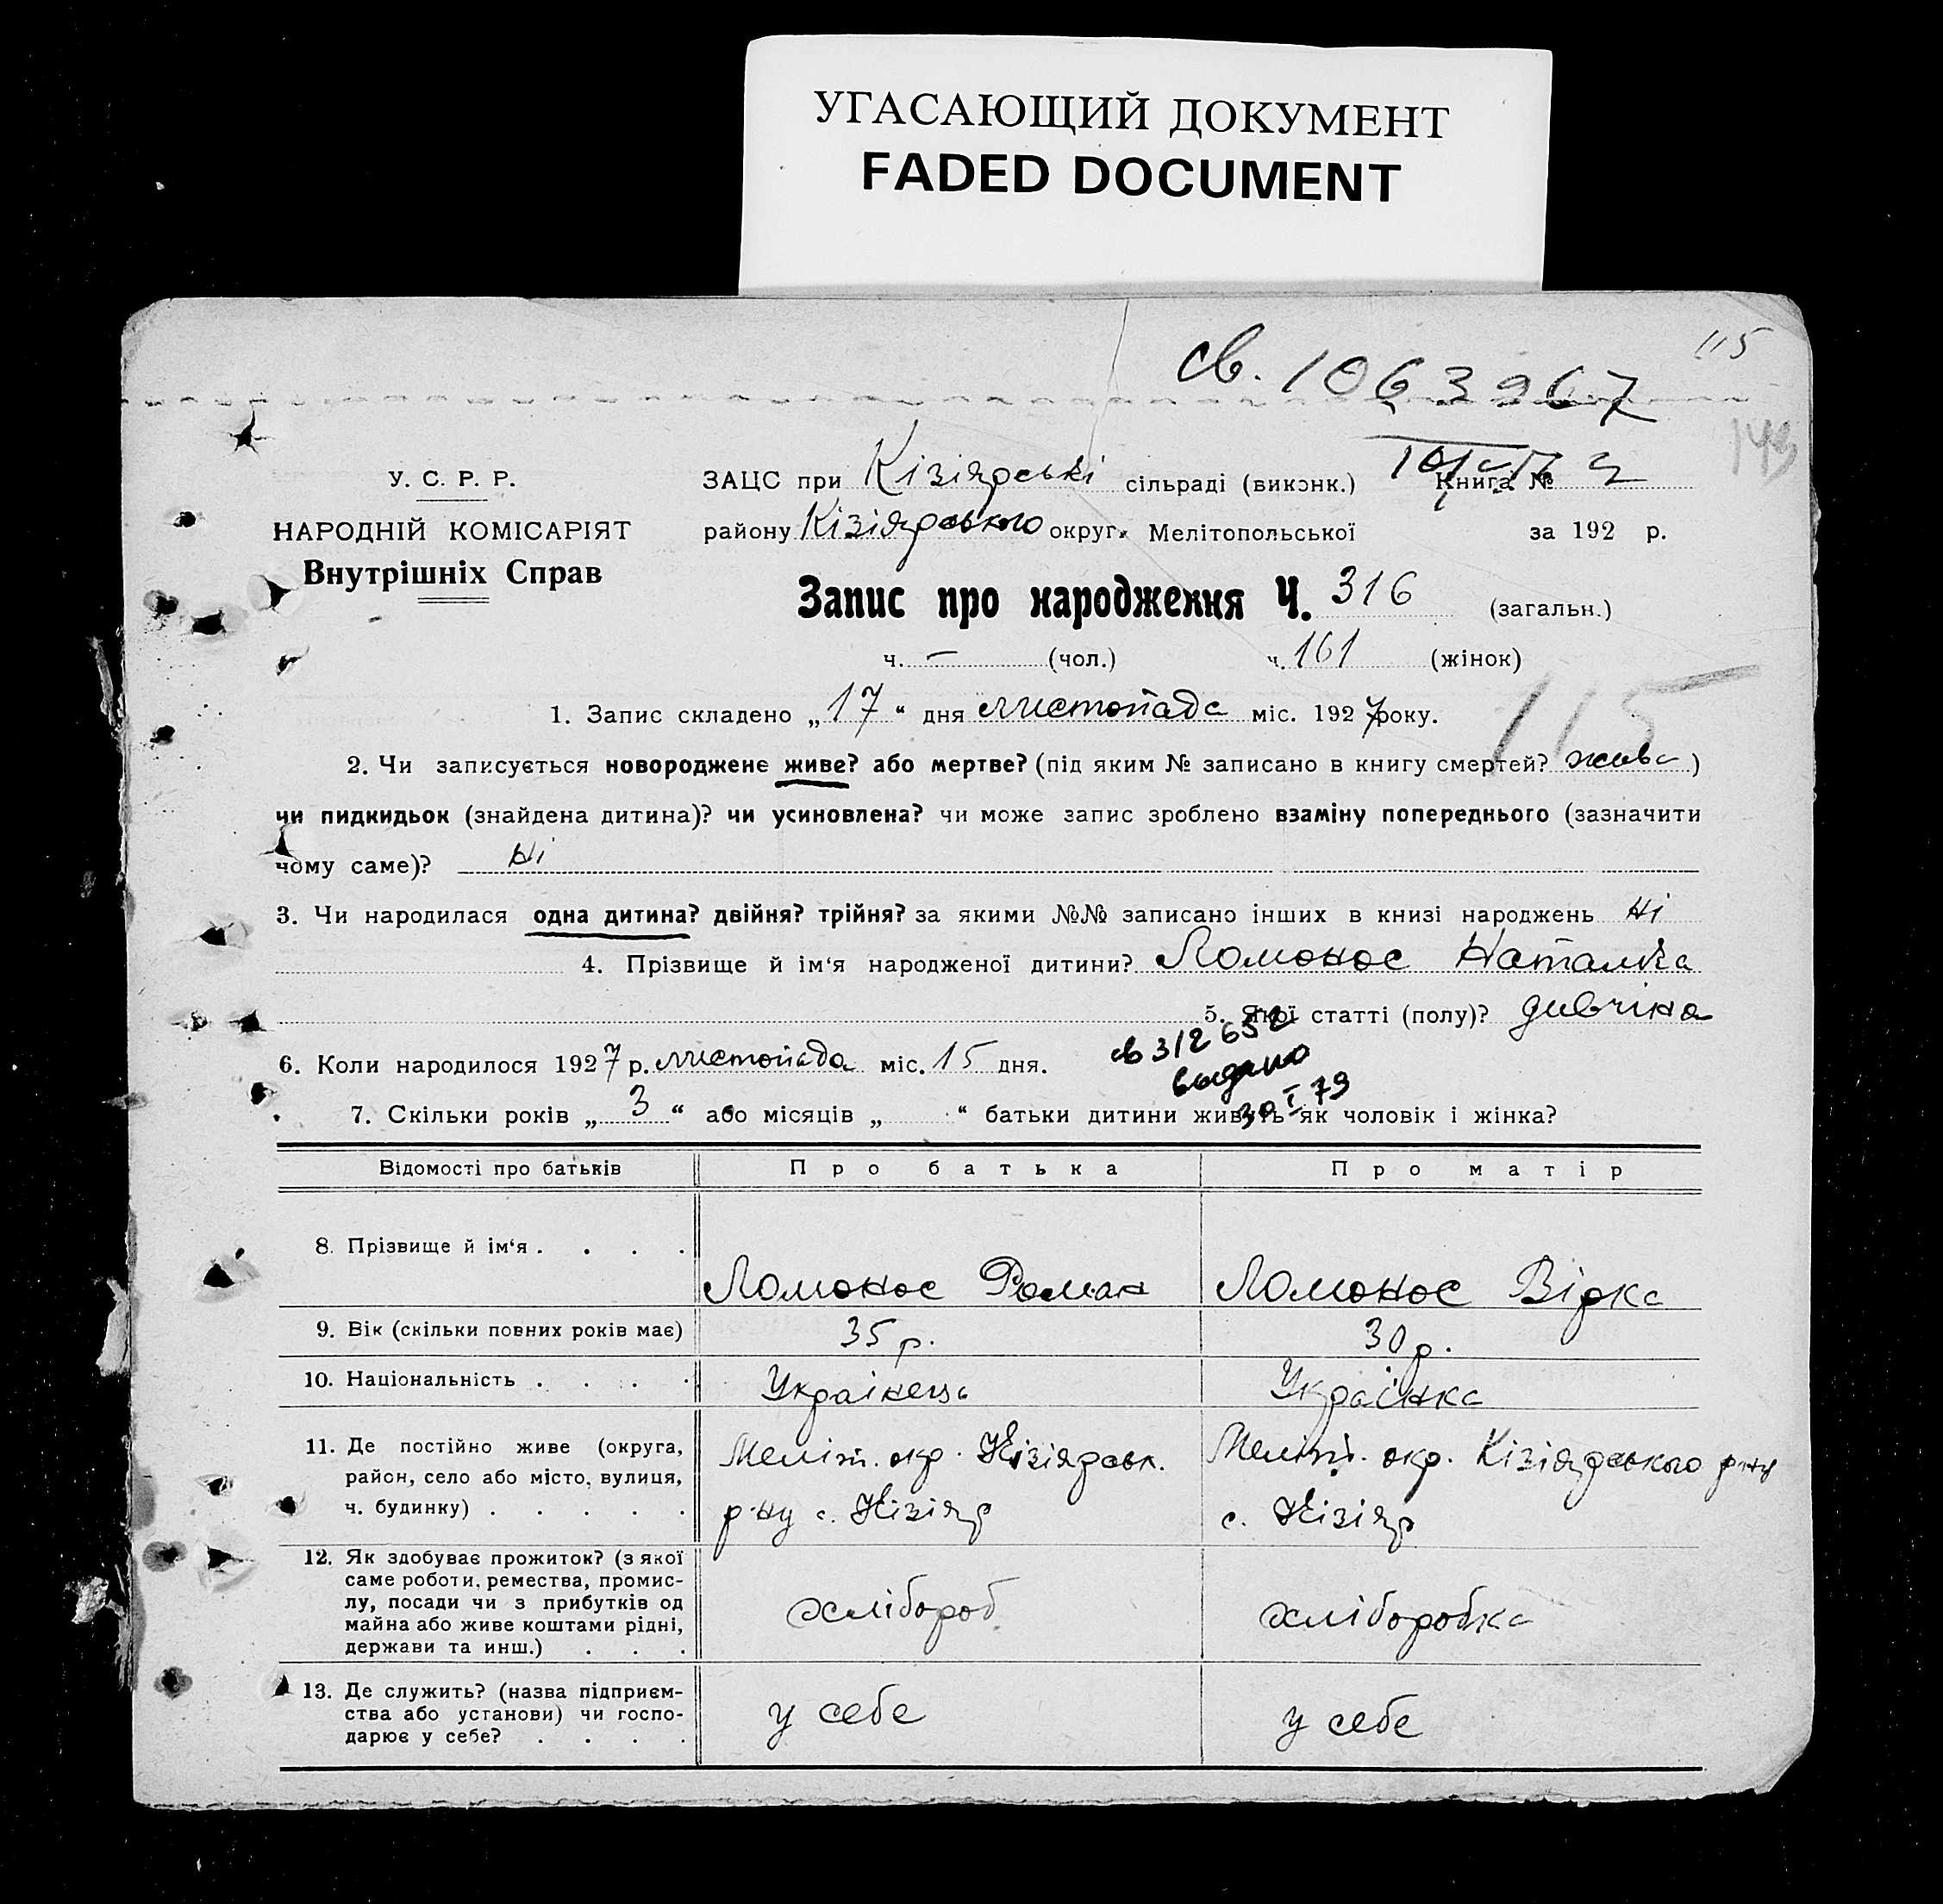 УГАСАЮЩИЙ ДОКУМЕНТ
FADED DOCUMENT
115
св. 1063967
143
У. С. Р. Р.
НАРОДНІЙ КОМІСАРІЯТ
Внутрішніх Справ
ЗАЦС при Кізіярські сільраді (виконк.) Книга №
району Кізіярського округи Мелітопольської за 192 р.
Запис про народження Ч. 316 (загальн.)
ч. — (чол.) ч. 161 (жінок)
1. Запис складено „17“ дня листопада міс. 1927 року.
115
2. Чи записується новороджене живе? або мертве? (під яким № записано в книгу смертей? жива)
чи пидкидьок (знайдена дитина)? чи усиновлена? чи може запис зроблено взаміну попереднього (зазначити
чому саме)? Ні
3. Чи народилася одна дитина? двійня? трійня? за якими №№ записано інших в книзі народжень Ні
4. Прізвище й ім‘я народженої дитини? Ломонос Наталка
5. Якої статті (полу)? дивчина
6. Коли народилося 1927 р. листопада міс. 15 дня.
св 312652
выдано
30 I 79
7. Скільки років „3“ або місяців „ “ батьки дитини живуть як чоловік і жінка?
Відомості про батьків Про батька Про матір
8. Прізвище й ім‘я . . . . Ломонос Роман Ломонос Вірка
9. Вік (скільки повних років має) 35 р. 30 р.
10. Національність . . . . Українець Українка
11. Де постійно живе (округа, район, село або місто, вулиця, ч. будинку) . . . . .
Меліт. окр. Кізіярськ. р-ну с. Кізіяр
Меліт. окр. Кізіярського р-ну с. Кізіяр
12. Як здобуває прожиток? (з якої
саме роботи, ремества, промис-
лу, посади чи з прибутків од
майна або живе коштами рідні,
держави та инш.) . . .
хлібороб хліборобка
13. Де служить? (назва підприєм-
ства або установи) чи госпо-
дарює у себе? . . . .
у себе у себе